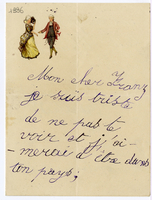 1886
Mon cher Franz
je suis triste
de ne pas te
voir et j'ai-
-merai d'être dans
ton pays;